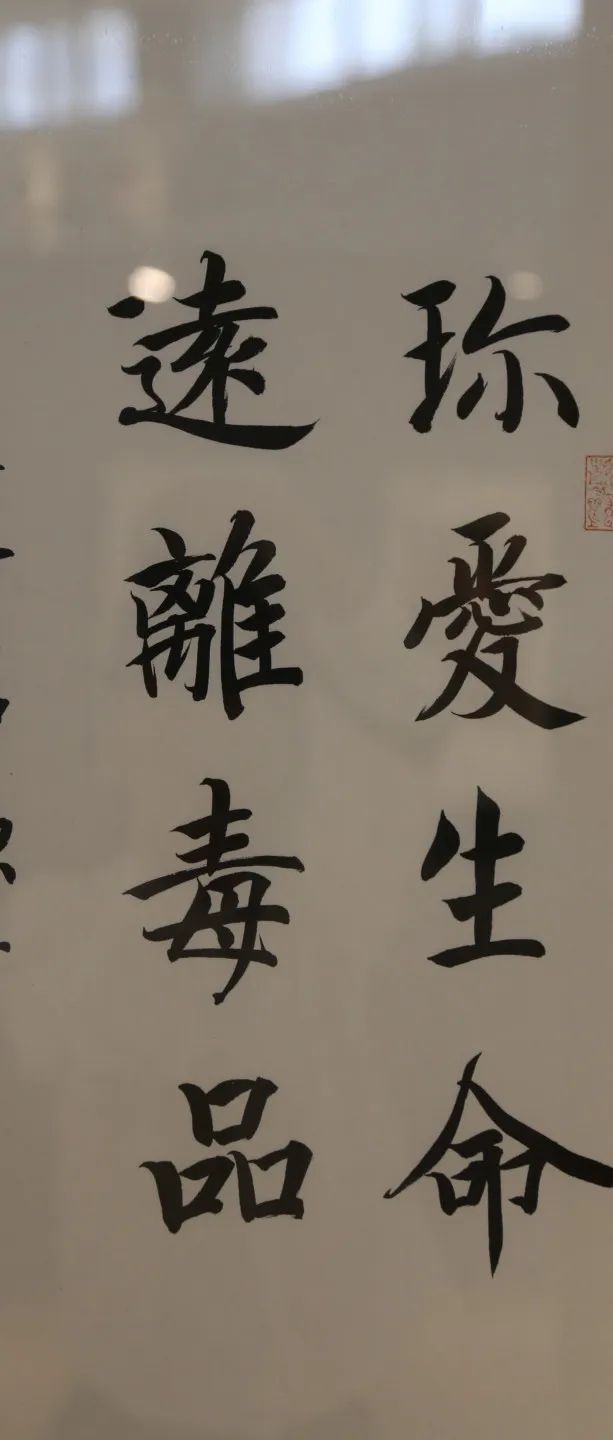 珎愛生命
遠離毒品